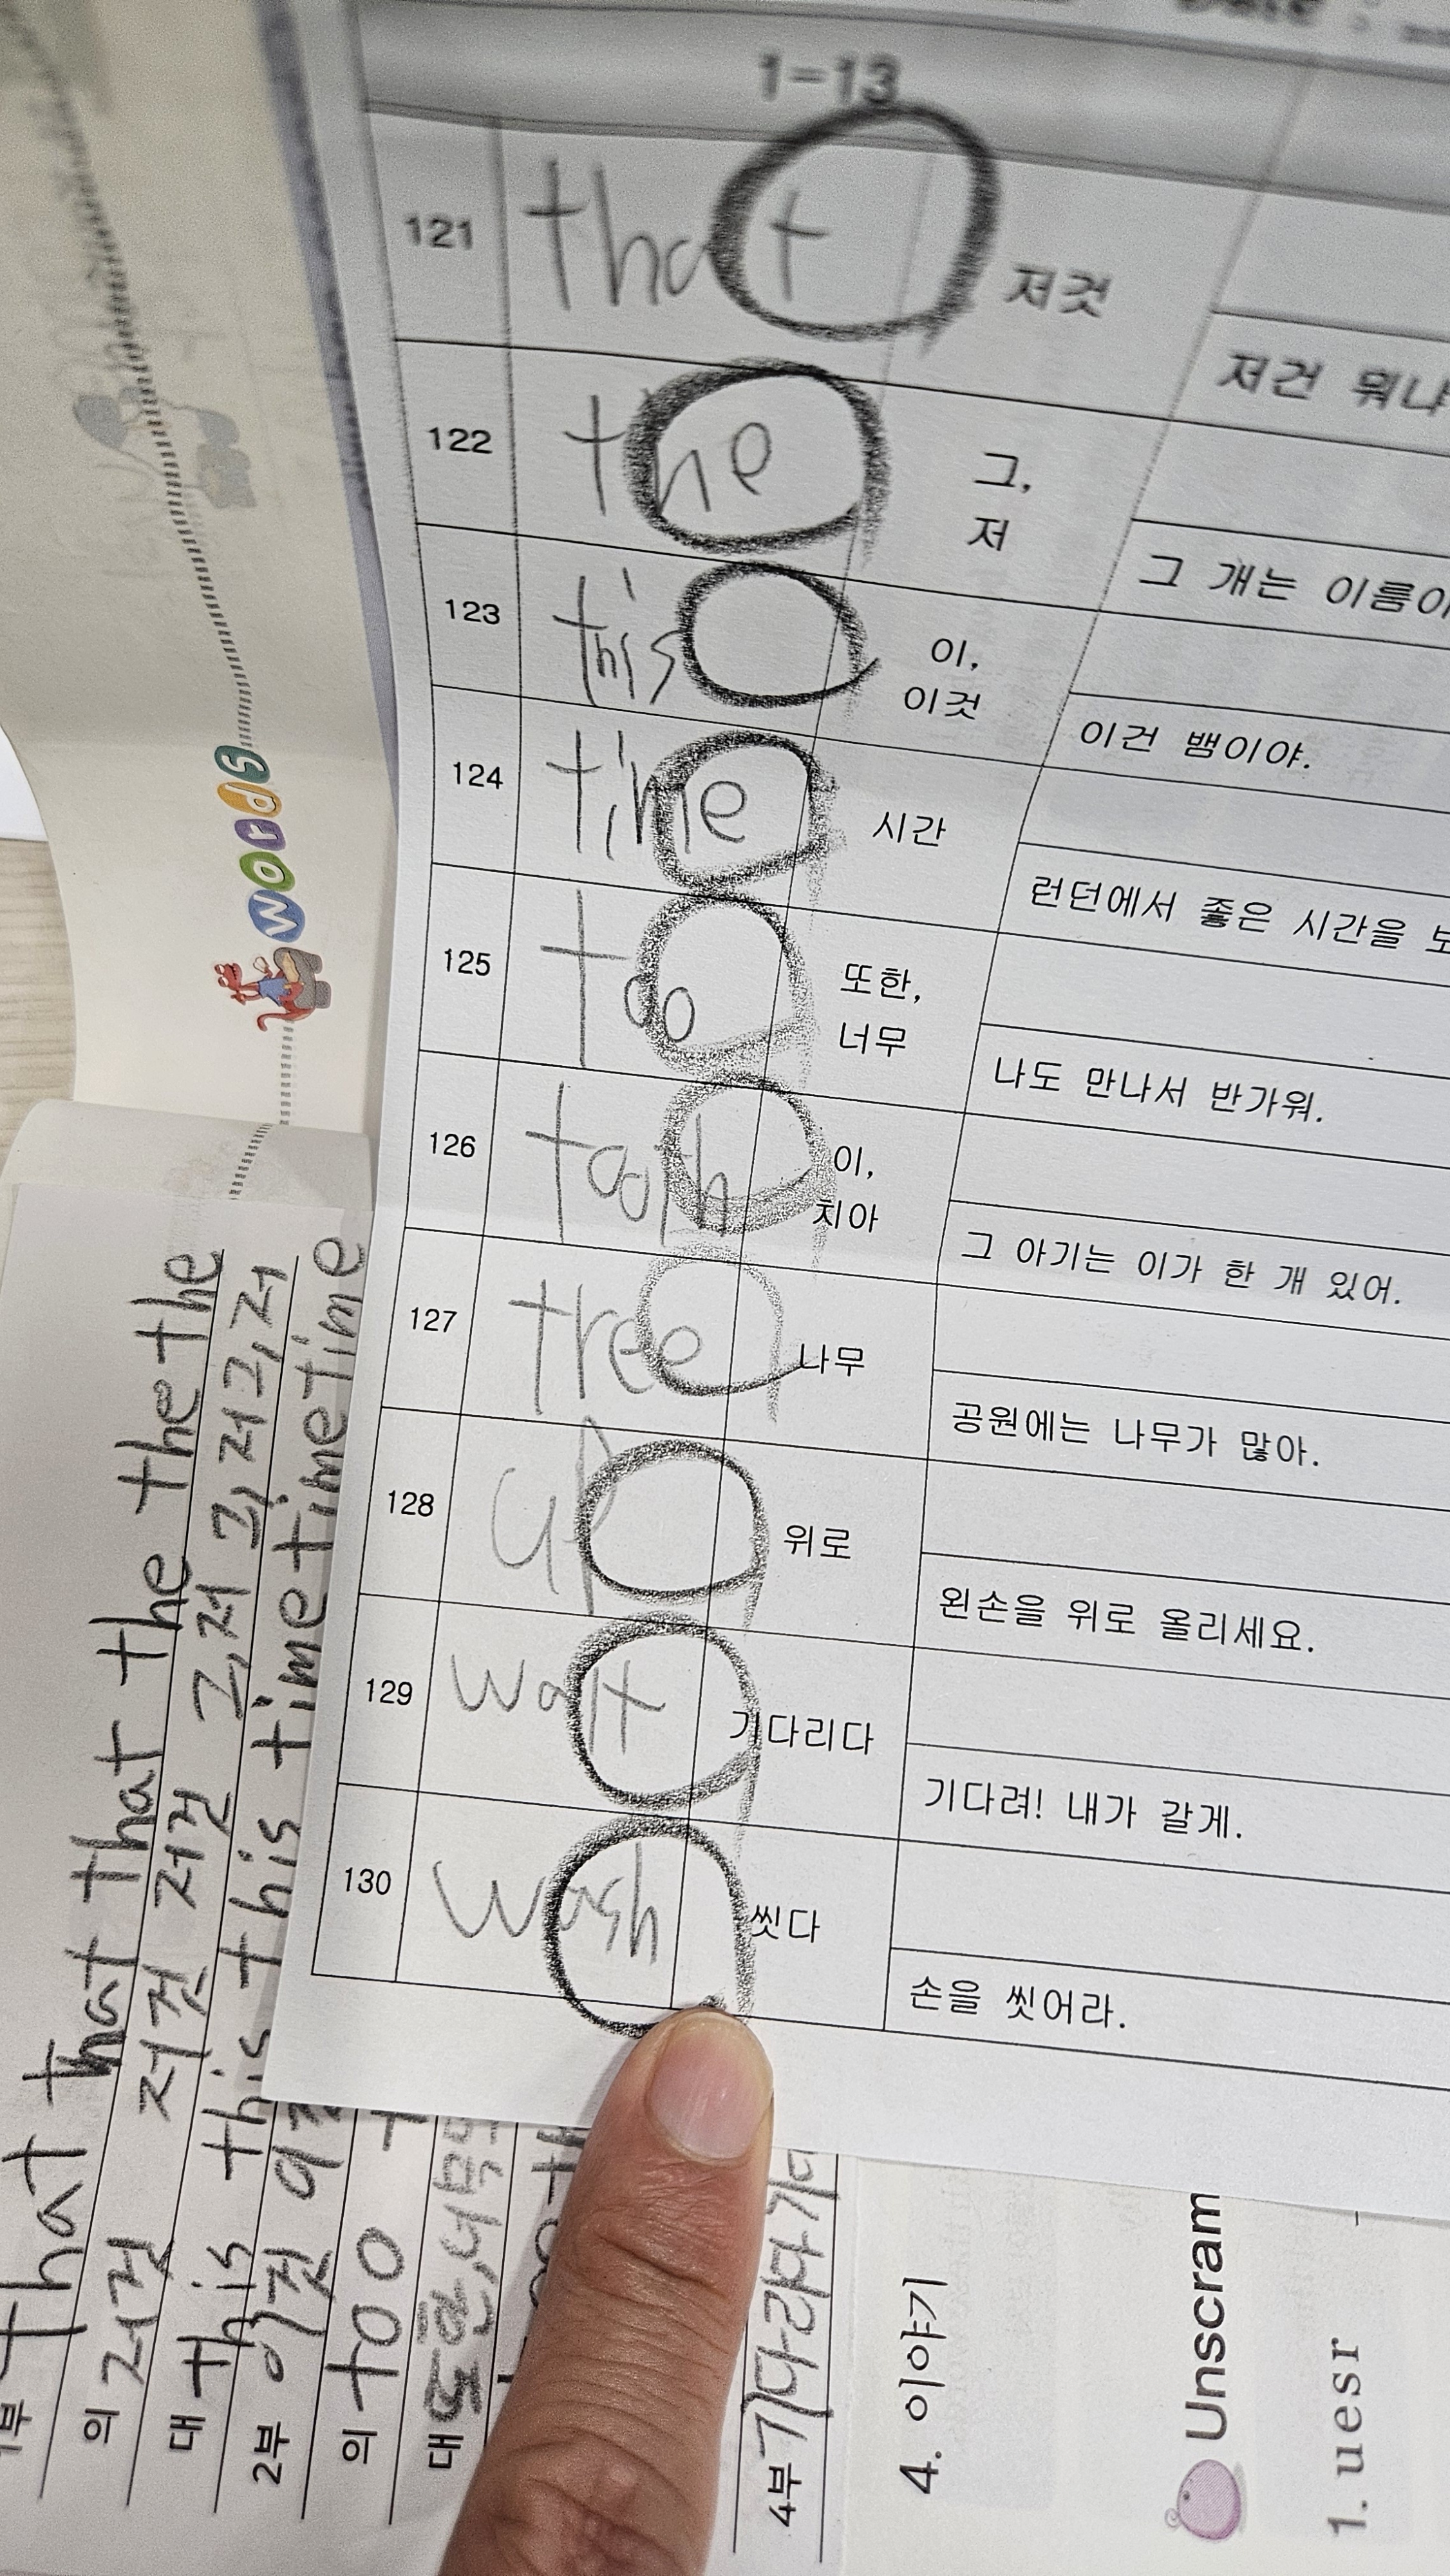 1-13
121 that 저것
저건 뭐냐
122 the 그,
저
그 개는 이름이
123 this 이,
이것
이건 뱀이야.
124 time 시간
런던에서 좋은 시간을 보
125 too 또한,
너무
나도 만나서 반가워.
126 tooth 이,
치아
그 아기는 이가 한 개 있어.
127 tree 나무
공원에는 나무가 많아.
128 up 위로
왼손을 위로 올리세요.
129 wait 기다리다
기다려! 내가 갈게.
130 wash 씻다
손을 씻어라.
words
that that that that the the the
의 저것 저것 저것 그,저 그,저 그,저
대 this this this time time time
2부 이것
의 too
대 또한,너무
4부 기다리다 기다
4. 이야기
Unscram
1. uesr